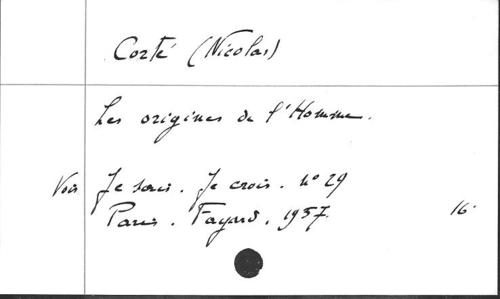 Corté (Nicolas)
Les origines de l'Homme.
Voir Je sais. Je crois. n° 29
Paris. Fayard. 1957. 16°